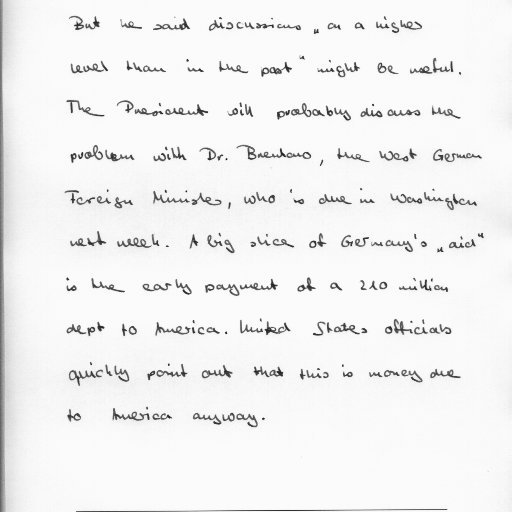 But he said discussions „on a higher
level than in the past“ might be useful.
The President will probably discuss the
problem with Dr. Brentano, the West German
Foreign Minister, who is due in Washington
next week. A big slice of Germany's „aid“
is the early payment of a 210 million
dept to America. United States officials
quickly point out that this is money due
to America anyway.